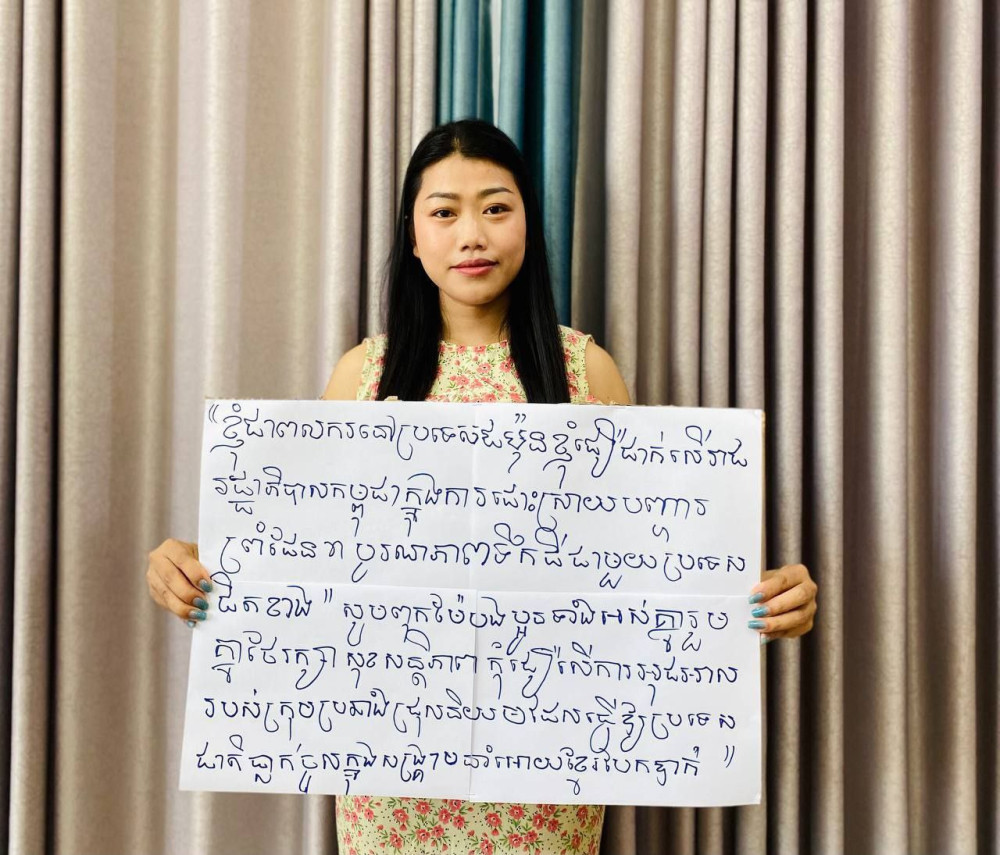 "ខ្ញុំជាពលករនៅប្រទេសជប៉ុនខ្ញុំជឿជាក់លើរាជ
រដ្ឋាភិបាលកម្ពុជាក្នុងការដោះស្រាយបញ្ហារ
ព្រំដែន បូរណភាពទឹកដី ជាមួយប្រទេស
ជិតខាង" សូមពុកម៉ែបងប្អូនទាំងអស់គ្នារួម
គ្នាថែរក្សា សុខសន្តិភាព កុំជឿលើការអុជអាល
របស់ក្រុមប្រឆាំងជ្រុលនិយមដែលធ្វើឱ្យប្រទេស
ជាតិធ្លាក់ចូលក្នុងសង្គ្រាម នាំអោយខ្មែរបែកបាក់"